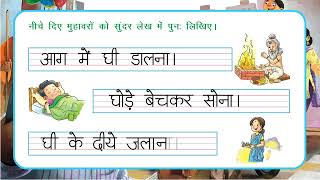 नीचे दिए मुहावरों को सुंदर लेख में पुनः लिखिए।
आग में घी डालना।
घोड़े बेचकर सोना।
घी के दीये जलाना।